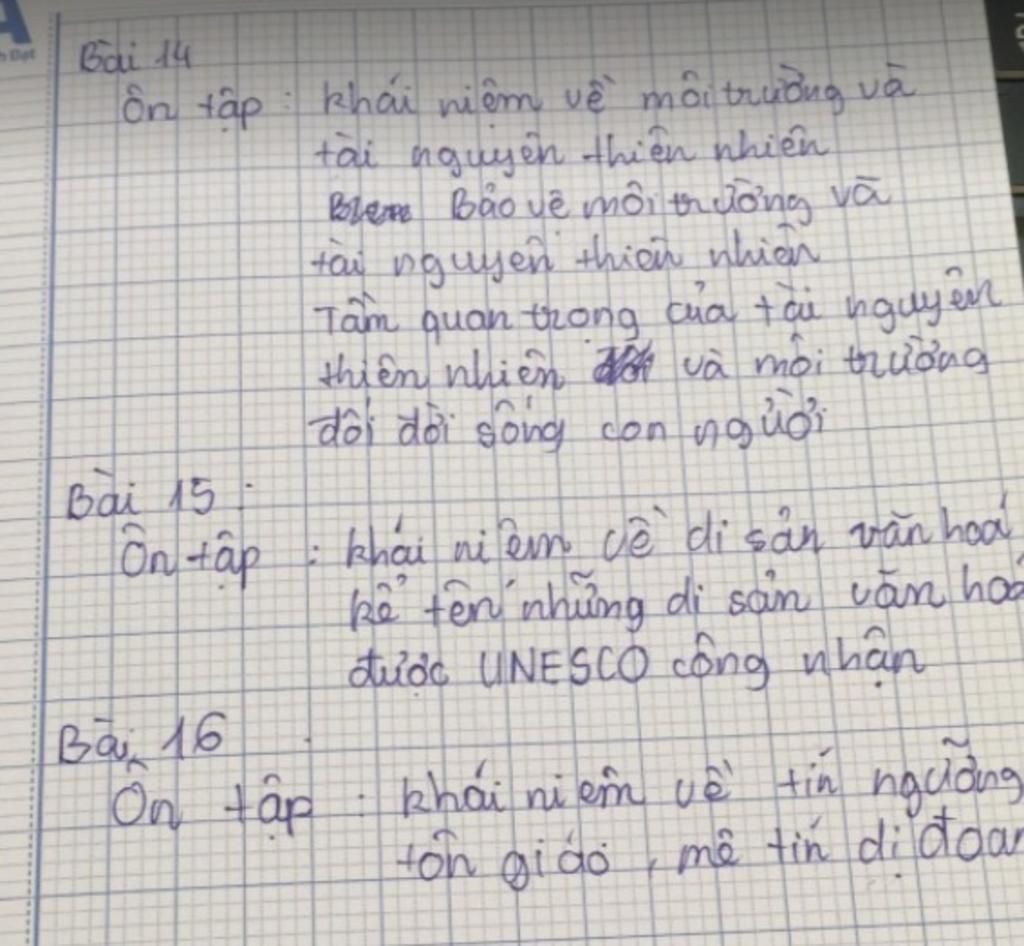 Bài 14
Ôn tập : khái niệm về môi trường và
tài nguyên thiên nhiên
Bảo vệ môi trường và
tài nguyên thiên nhiên
Tầm quan trọng của tài nguyên
thiên nhiên và môi trường
đối đời sống con người
Bài 15 :
Ôn tập : khái niệm về di sản văn hoá
kể tên những di sản văn hoá
được UNESCO công nhận
Bài 16
Ôn tập : khái niệm về tín ngưỡng
tôn giáo , mê tín dị đoan